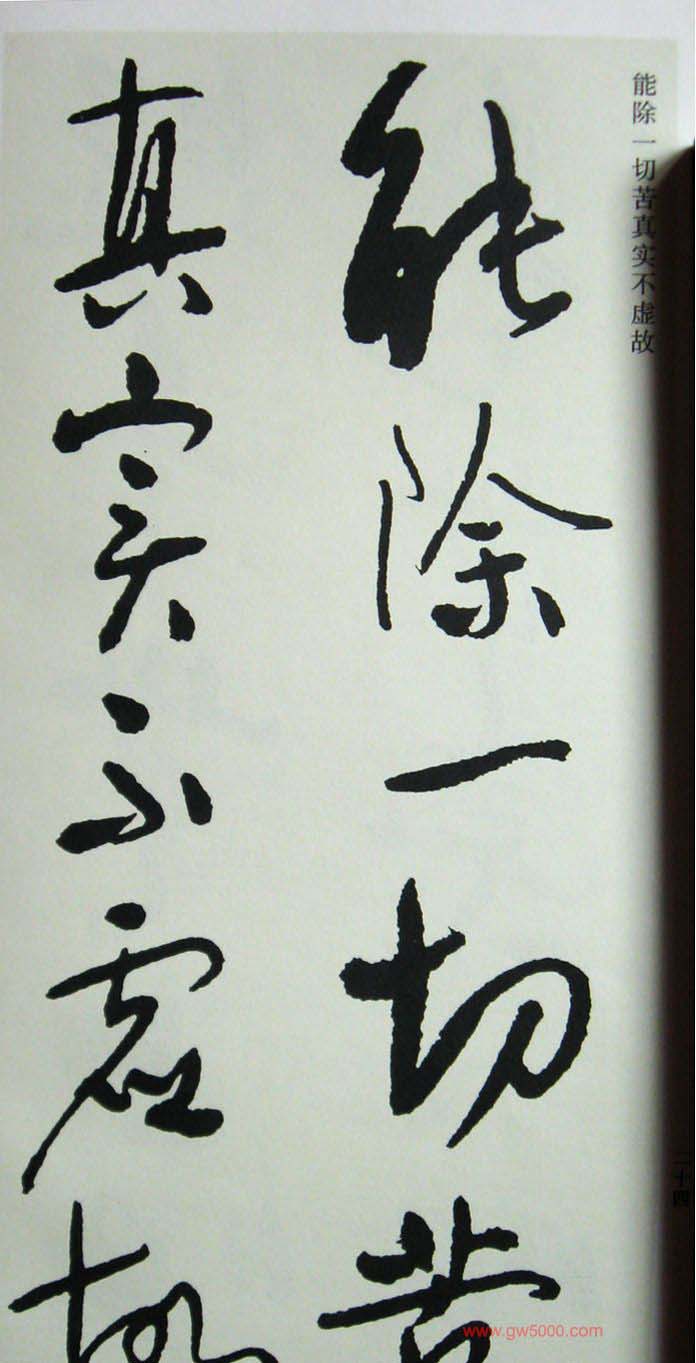 能除一切苦真实不虚故
能除一切苦
真实不虚故
二十四
www.gw5000.com